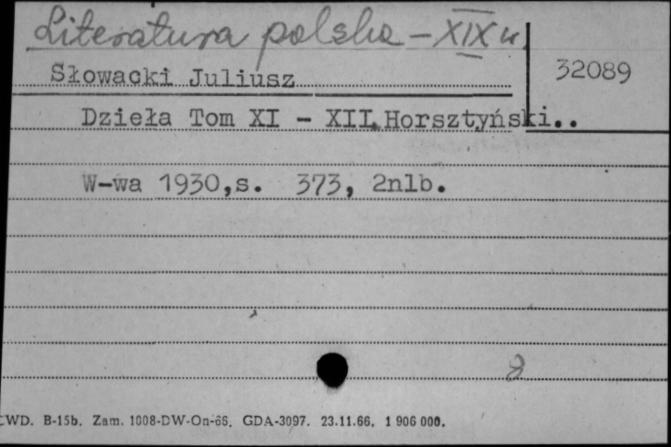 Literatura polska - XIX w.
Słowacki Juliusz
32089
Dzieła Tom XI - XII. Horsztyński..
W-wa 1930,s. 373, 2nlb.
8
CWD. B-15b. Zam. 1008-DW-On-66. GDA-3097. 23.11.66. 1 906 000.